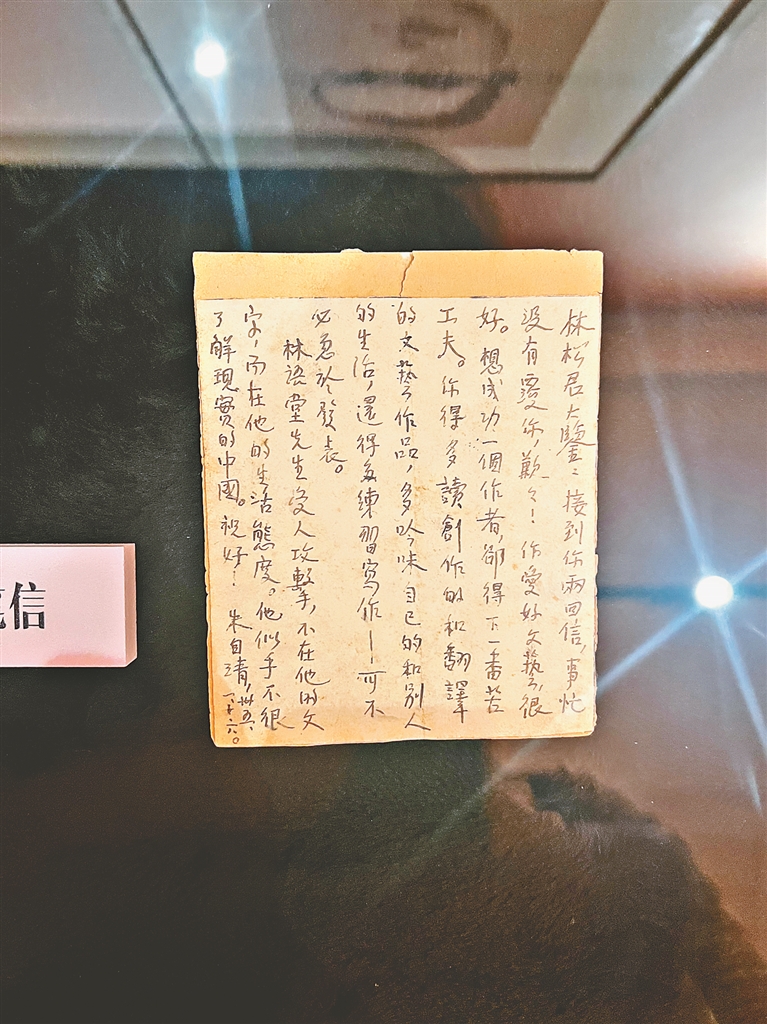 林松君大鑒：接到你兩回信，事忙
沒有覆你，歉々！你愛好文藝，很
好。想成功一個作者，卻得下一番苦
工夫。你得多讀創作的和翻譯
的文藝作品，多吟味自己的和別人
的生活，還得多練習寫作——可不
必急於發表。
林語堂先生受人攻擊，不在他的文
字，而在他的生活態度。他似乎不很
了解現實的中國。祝好！
朱自清，卅五、
信